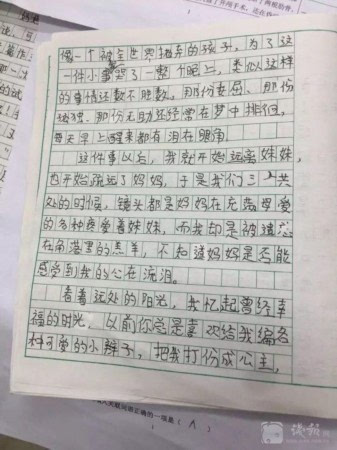 像一个被全世界抛弃的孩子，为了这
一件小事哭了一整个晚上，类似这样
的事情还数不胜数。那份委屈、那份
孤独、那份无助还经常在梦中排徊，
每天早上醒来都有泪在眼角。
这件事以后，我就开始远离妹妹，
也开始疏远了妈妈，于是我们三人共
处的时候，镜头都是妈妈在充满母爱
的多种疼爱着妹妹，而我却是被遗忘
在角落里的羔羊，不知道妈妈是否能
感受到我的心在流泪。
看着远处的阳光，我忆起曾经幸
福的时光，以前你总是喜欢给我编各
种可爱的小辫子，把我打份成公主，
正确的一项是（ A ）